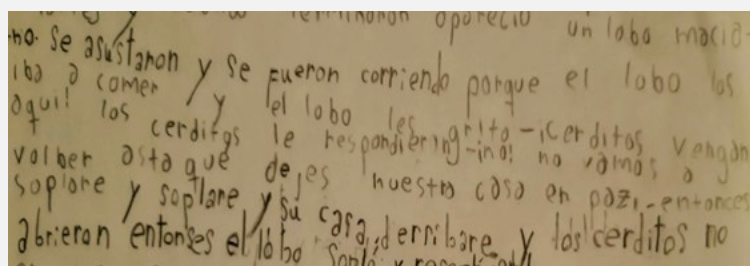 terminaron aparecio un lobo macia-
-no. se asustaron y se fueron corriendo porque el lobo los
iba a comer y el lobo les grito -¡cerditos vengan
aqui! los cerditos le respondieron -¡no! no vamos a
volber asta que dejes nuestra casa en paz, -entonces
soplare y soplare y su casa, derribare y los cerditos no
abrieron entonses el lobo soplo y